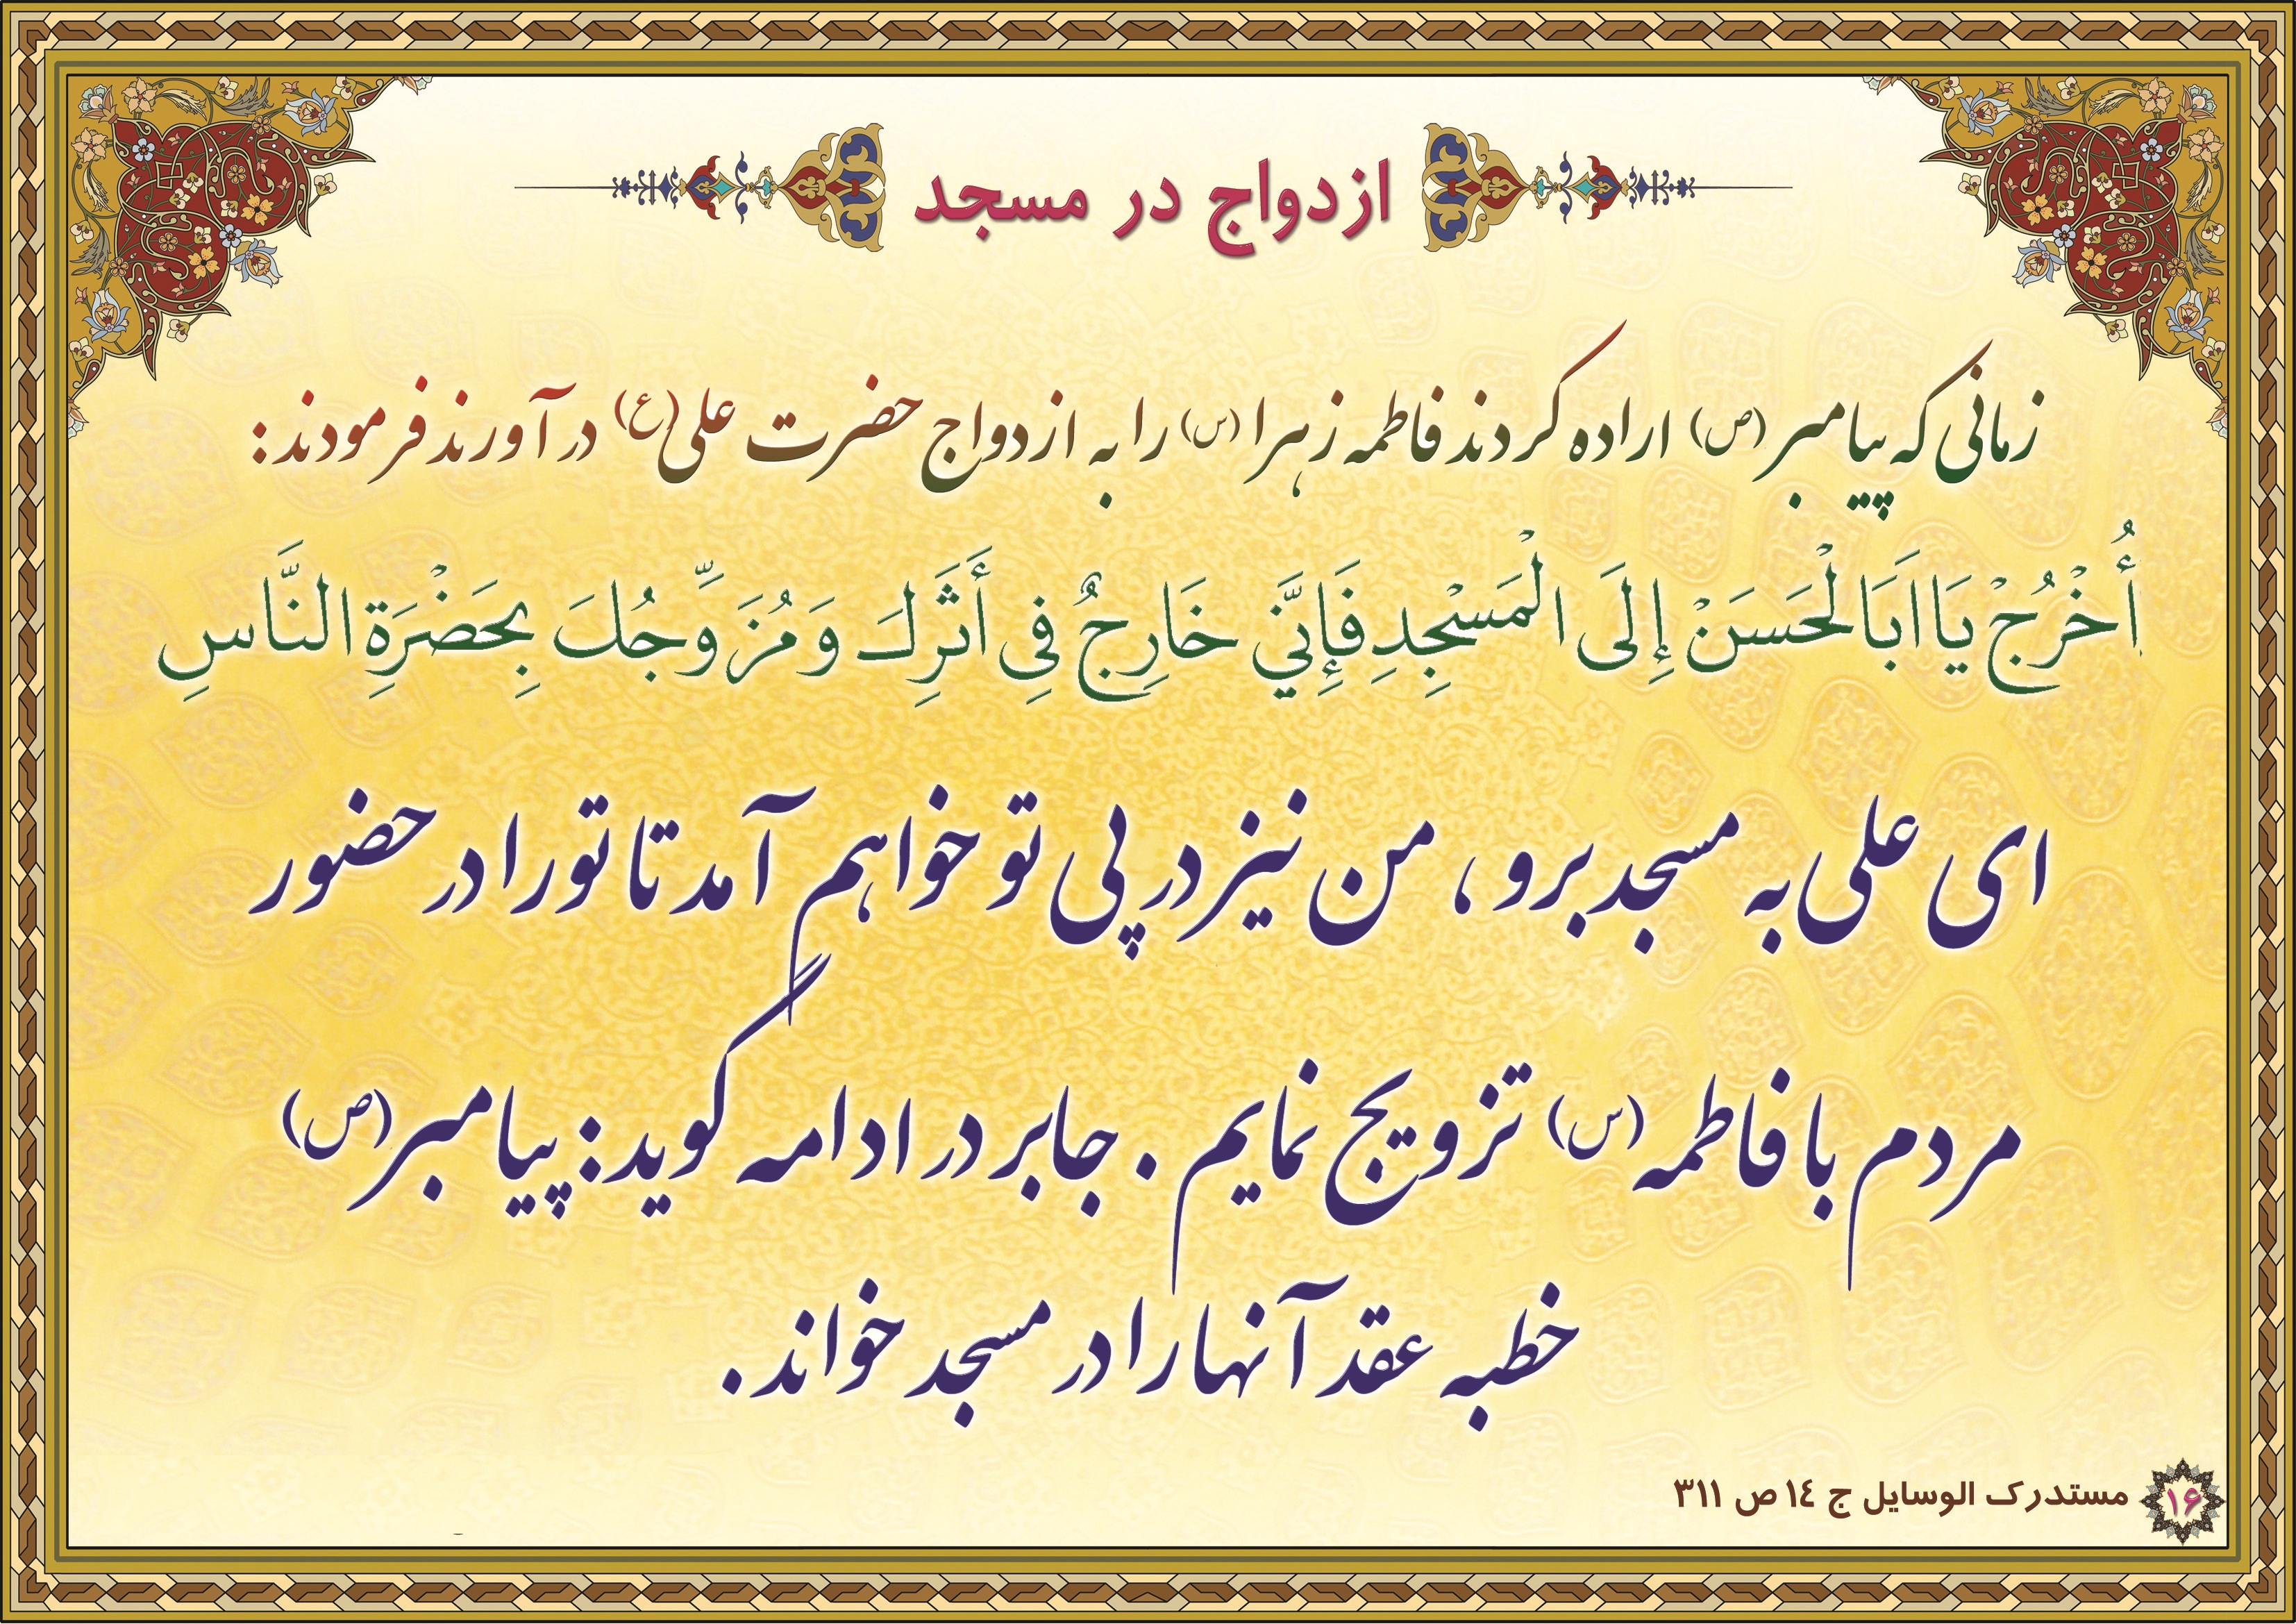 ازدواج در مسجد
زمانی که پیامبر (ص) اراده کردند فاطمه زهرا (س) را به ازدواج حضرت علی (ع) در آورند فرمودند:
أُخْرُجْ يَا اَبَا الْحَسَنْ إِلَى الْمَسْجِدِ فَإِنَّي خَارِجٌ فِي أَثَرِكَ وَ مُزَوِّجُكَ بِحَضْرَةِ النَّاسِ
ای علی به مسجد برو ، من نیز در پی تو خواهم آمد تا تو را در حضور
مردم با فاطمه (س) تزویج نمایم . جابر در ادامه گوید: پیامبر (ص)
خطبه عقد آنها را در مسجد خواند .
۱۶ مستدرک الوسایل ج ١٤ ص ٣١١